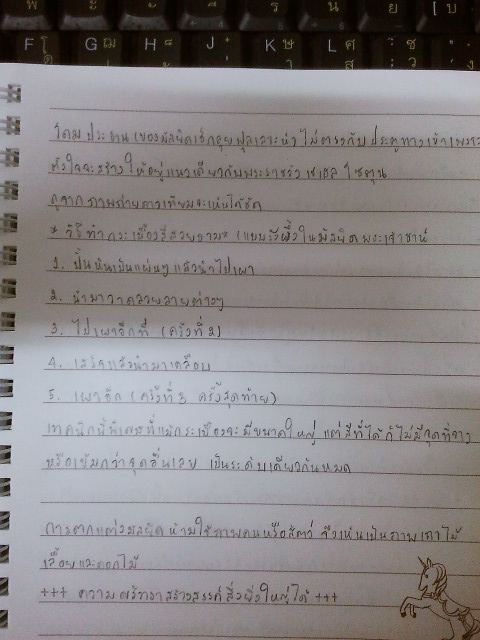 พ ะ ั ี ร น ย บ
F โ ด G ฌ เ H ็ ้ J ๋ ่ K ษ า L ศ ส ซ ว
โดม ประธาน (ของมัสยิดเช็คลุฟุลเลาะห์) ไม่ตรงกับประตูทางเข้าเพราะ
ตั้งใจจะสร้างให้อยู่แนวเดียวกันพระราชวัง เชเฮล โซตุน
ดูจากภาพถ่ายดาวเทียมจะเห็นได้ชัด
* วิธีทำกระเบื้องสีสวยงาม* (แบบรังผึ้งในมัสยิดพระเจ้าชาห์
1. ปั้นหินเป็นแผ่นๆ แล้วนำไปเผา
2. นำมาวาดลวดลายต่างๆ
3. ไปเผาอีกที (ครั้งที่ 2)
4. เสร็จแล้วนำมาเคลือบ
5. เผาอีก (ครั้งที่ 3 ครั้งสุดท้าย)
เทคนิคนี้พิเศษที่แม้กระเบื้องจะมีขนาดใหญ่ แต่สีที่ได้ก็ไม่มีจุดที่จาง
หรือเข้มกว่าจุดอื่นเลย เป็นระดับเดียวกันหมด
การตกแต่งมัสยิด ห้ามใช้ภาพคนหรือสัตว์ จึงเห็นเป็นภาพเถาไม้
เลื้อยและดอกไม้
+++ ความศรัทธาสร้างสรรค์สิ่งยิ่งใหญ่ได้ +++